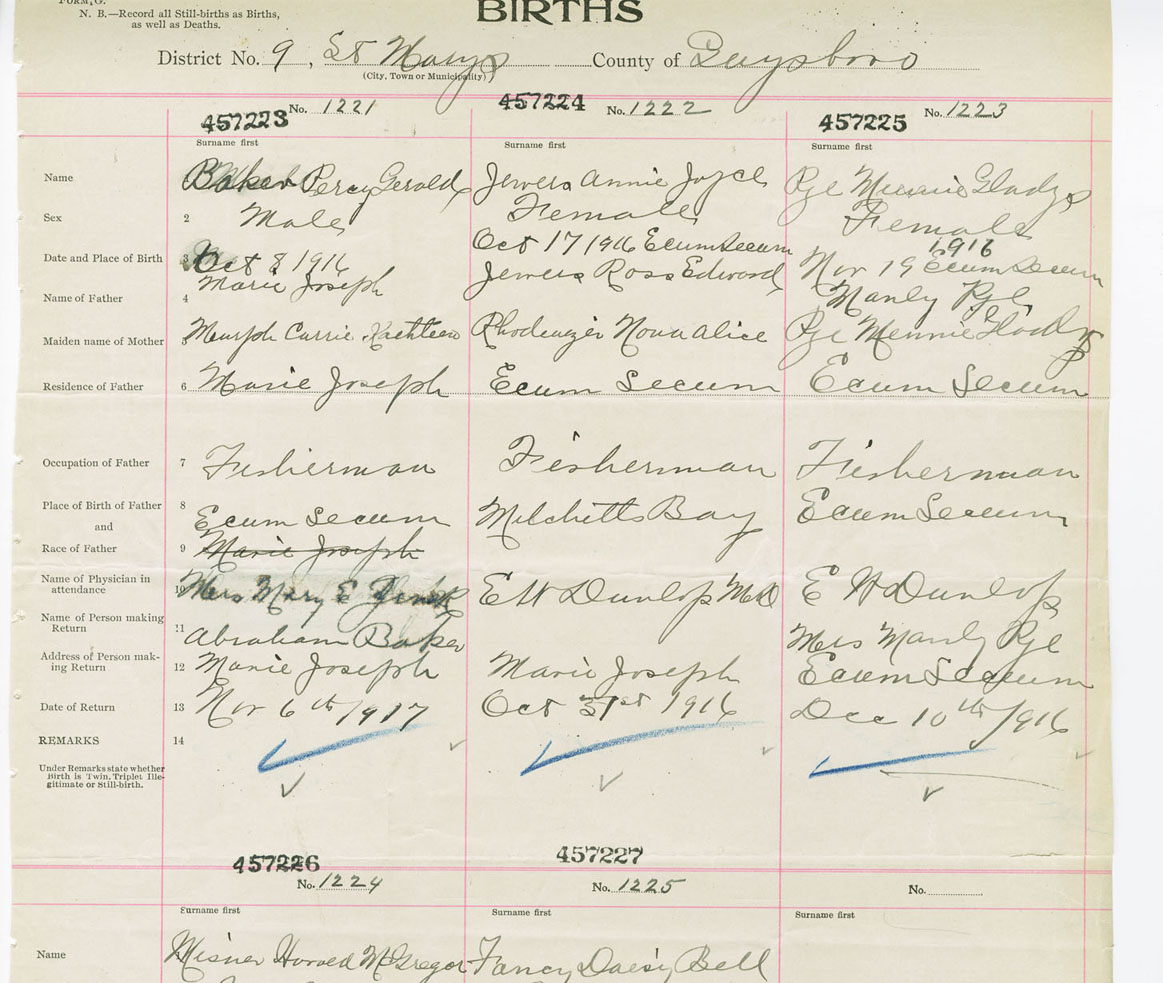 FORM G.
N. B.—Record all Still-births as Births,
as well as Deaths.
BIRTHS
District No. 9, St Marys County of Guysboro
(City, Town or Municipality)
457223 No. 1221
457224 No. 1222
457225 No. 1223
Surname first Surname first Surname first
Name 1 Baker Percy Gerald Jewers Annie Joyce Pye Minnie Gladys
Sex 2 Male Female Female
Date and Place of Birth 3 Oct 8 1916 Marie Joseph Oct 17 1916 Ecum Secum Nov 19 1916 Ecum Secum
Name of Father 4 Jewers Ross Edward Manly Pye
Maiden name of Mother 5 Carrie Kathleen Nova Alice Pye Mennie Gladys
Residence of Father 6 Marie Joseph Ecum Secum Ecum Secum
Occupation of Father 7 Fisherman Fisherman Fisherman
Place of Birth of Father 8 Ecum Secum Mitchells Bay Ecum Secum
and
Race of Father 9 Marie Joseph
Name of Physician in
attendance 10 Mrs Mary E E H Dunlop MD E H Dunlop
Name of Person making
Return 11 Abraham Baker Mrs Manly Pye
Address of Person mak-
ing Return 12 Marie Joseph Marie Joseph Ecum Secum
Date of Return 13 Nov 6th/1917 Oct 31st 1916 Dec 10th/1916
REMARKS 14
Under Remarks state whether
Birth is Twin, Triplet Ille-
gitimate or Still-birth.
457226 457227
No. 1224 No. 1225 No.
Surname first Surname first Surname first
Name 1 Misner Howard McGregor Fancy Daisy Bell